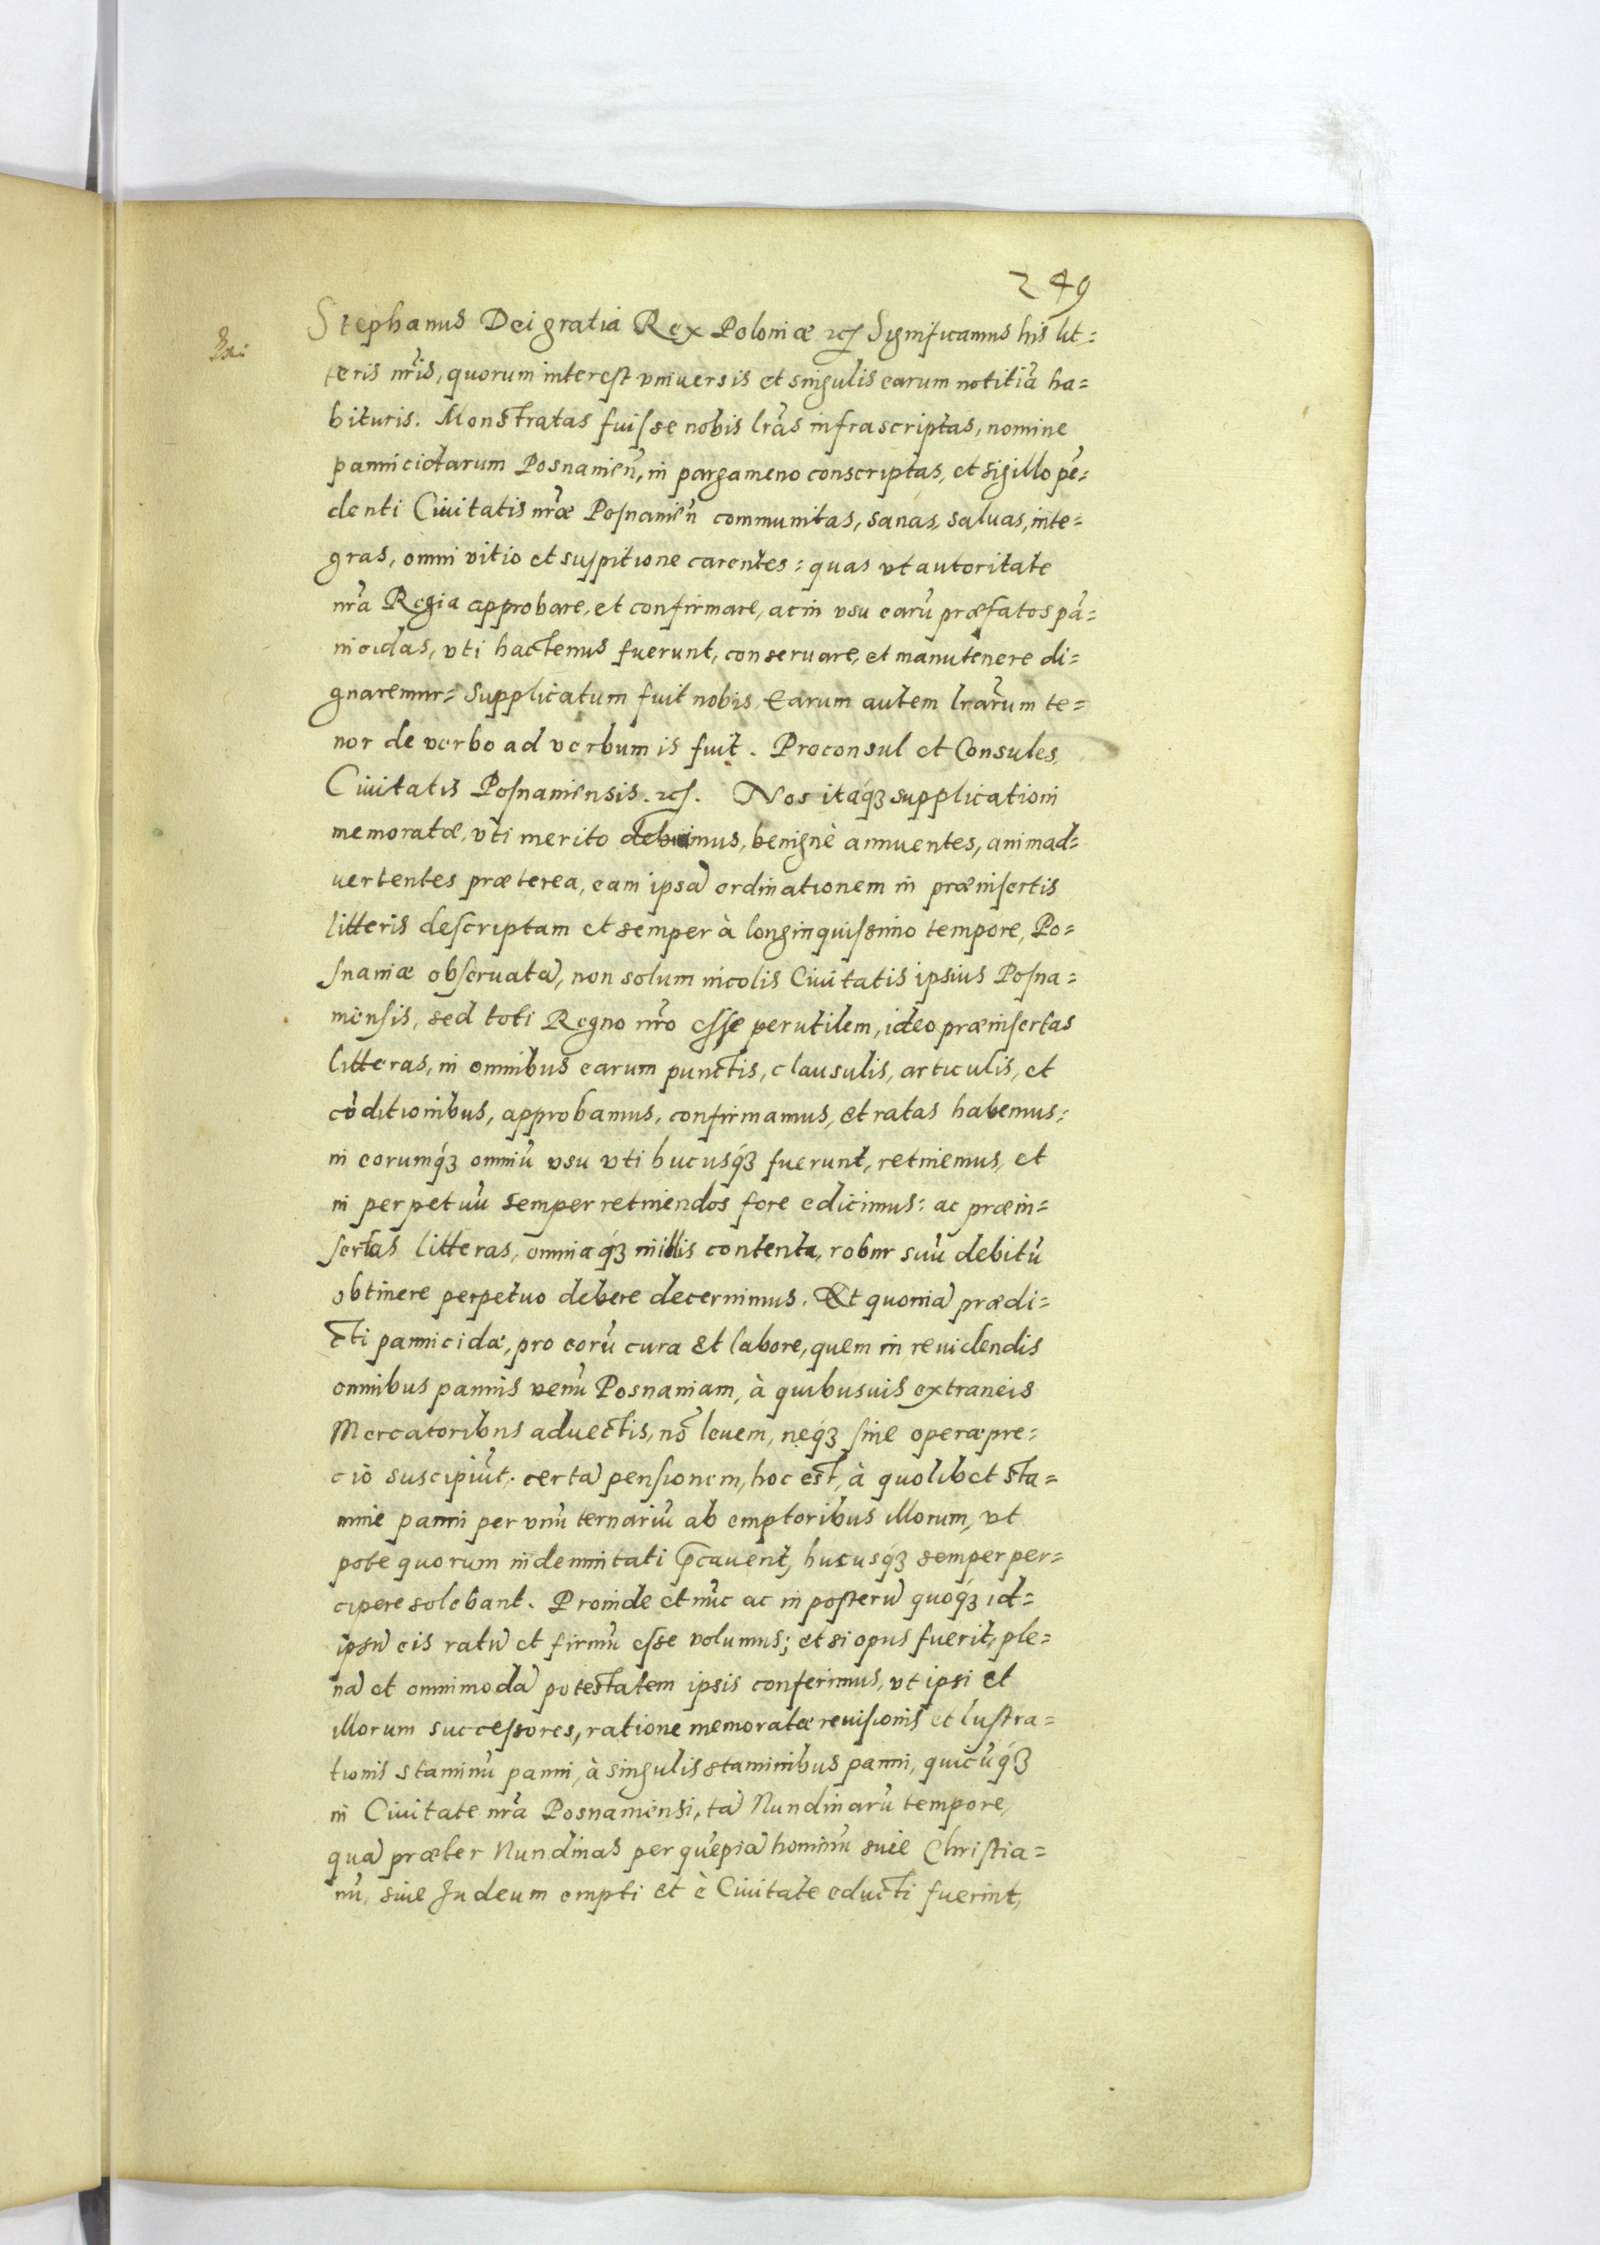 249
Stephanus Dei gratia Rex Poloniæ etc Significamus his lit=
teris nr̃is, quorum interest vniuersis et singulis earum notitiã ha=
bituris. Monstratas fuisse nobis lr̃as infrascriptas, nomine
pannicidarum Posnanień, in pargameno conscriptas, et sigillo pẽ=
denti Ciuitatis nr̃æ Posnanień communitas, sanas, saluas, inte=
gras, omni vitio et suspitione carentes: quas vt autoritate
nr̃a Regia approbare, et confirmare, ac in vsu earũ præfatos pã=
nicidas, vti hactenus fuerunt, conseruare, et manutenere di=
gnaremur: supplicatum fuit nobis. Earum autem lr̃arum te=
nor de verbo ad verbum is fuit. Proconsul et Consules
Ciuitatis Posnaniensis. etc. Nos itaq́ꝫ supplicationi
memoratæ, vti merito debuimus, benignè annuentes, animad=
uertentes præterea, eam ipsã ordinationem in præinsertis
litteris descriptam et semper à longinquissimo tempore, Po=
snaniæ obseruatã, non solum incolis Ciuitatis ipsius Posna=
niensis, sed toti Regno nr̃o esse perutilem, ideo præinsertas
litteras, in omnibus earum punctis, clausulis, articulis, et
cõditionibus, approbamus, confirmamus, et ratas habemus:
in eorumq́ꝫ omniũ vsu vti hucusq́ꝫ fuerunt, retinemus, et
in perpetuũ semper retinendos fore edicimus: ac præin=
sertas litteras, omniaq́ꝫ in illis contenta, robur suũ debitũ
obtinere perpetuo debere decernimus. Et quoniã prædi=
cti pannicidæ, pro eorũ cura et labore, quem in reuidendis
omnibus pannis venũ Posnaniam, à quibusuis extraneis
Mercatoribus aduectis, nõ leuem, neq́ꝫ sine operæpre=
cio suscipiũt. certã pensionem, hoc est, à quolibet sta=
mine panni per vnũ ternariũ ab emptoribus illorum, vt
pote quorum indemnitati p̃cauent, hucusq́ꝫ semper per=
cipere solebant. Proinde et nũc ac in posterũ quoq́ꝫ id=
ipsũ eis ratũ et firmũ esse volumus; et si opus fuerit, ple=
nã et omnimodã potestatem ipsis conferimus, vt ipsi et
illorum successores, ratione memoratæ reuisionis et lustra=
tionis staminũ panni, à singulis staminibus panni, quicũq́ꝫ
in Ciuitate nr̃a Posnaniensi, tã Nundinarũ tempore,
quã præter Nundinas per quẽpiã hominũ siue Christia=
nũ, siue Judeum empti et è Ciuitate educti fuerint,